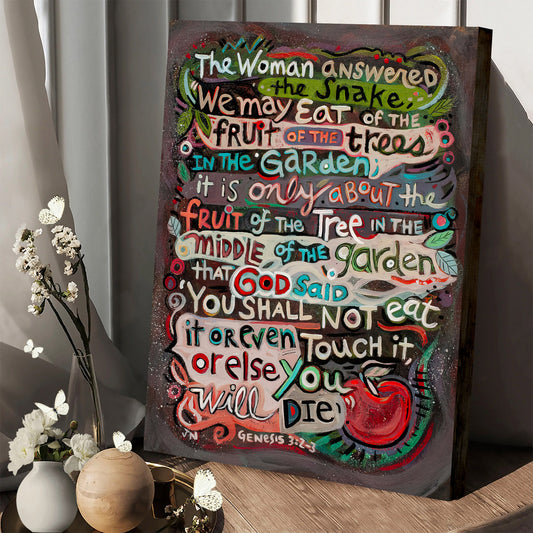 The Woman answered
the snake,
"We may Eat of the
fruit of the trees
in the Garden;
it is only about the
fruit of the Tree in the
middle of the garden
that God said
'You shall not eat
it or even Touch it,
or else You
will Die'"
JN Genesis 3:2-3